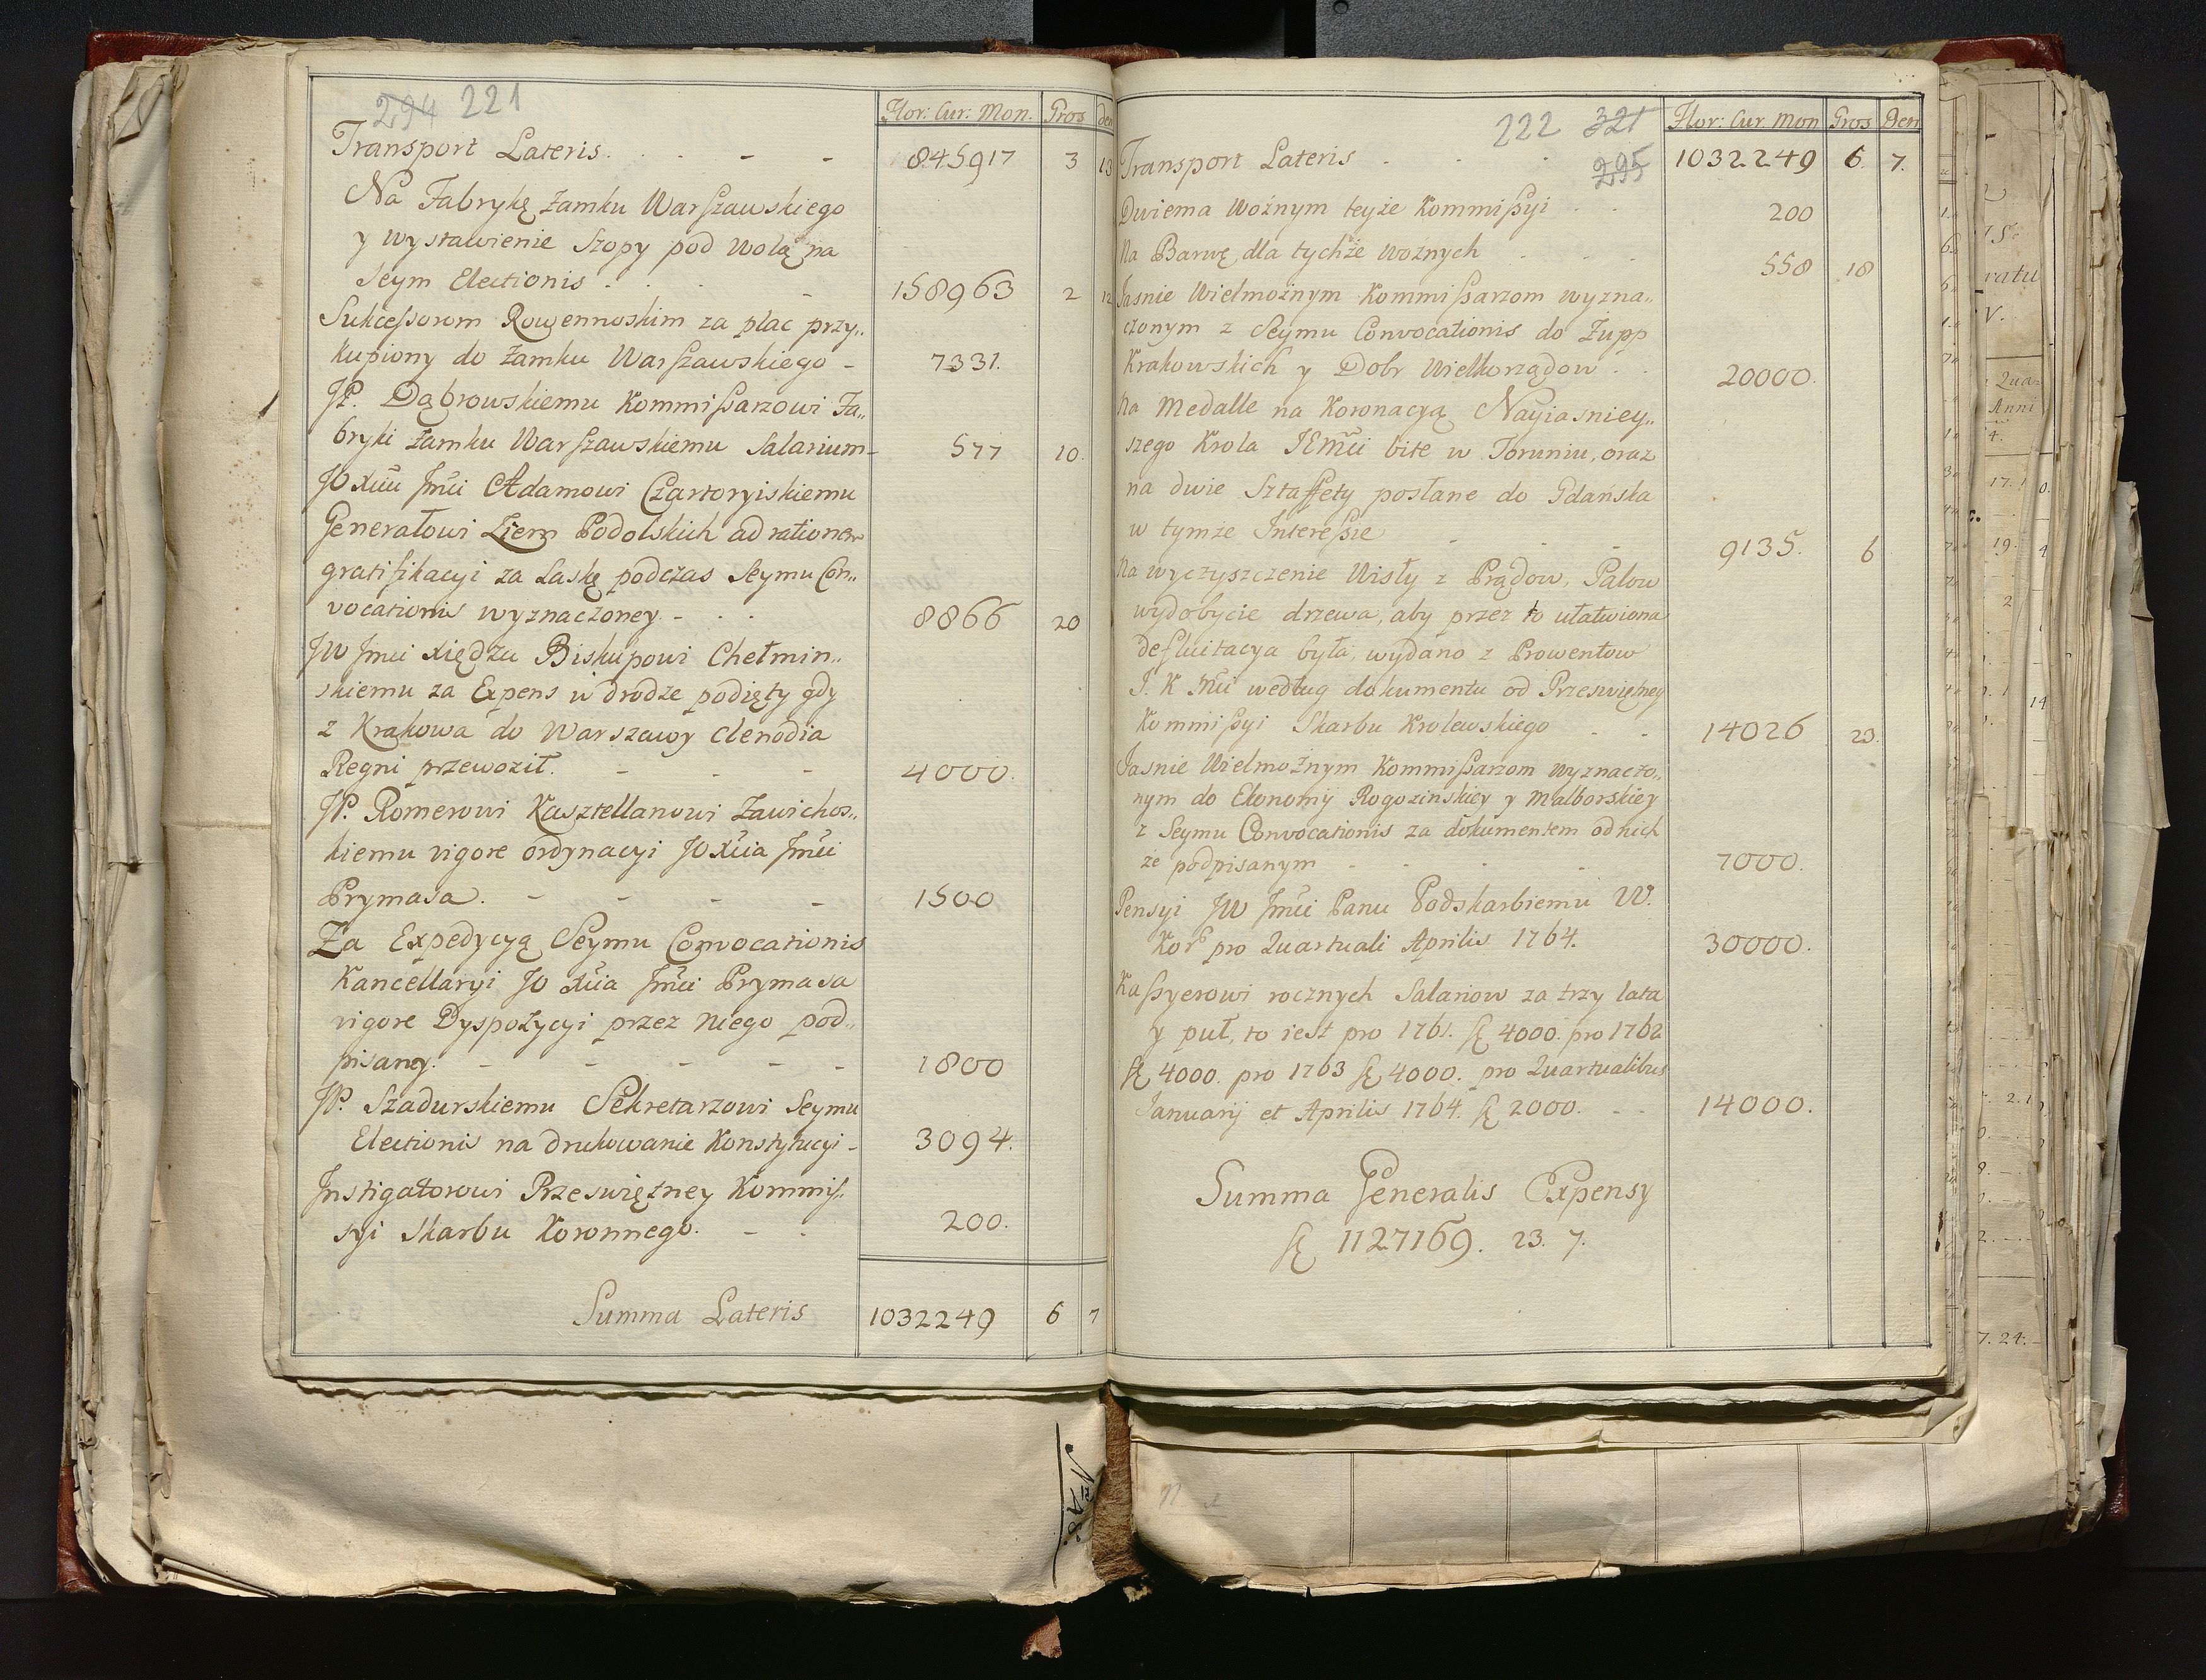 294 221
Flor: Cur: Mon. Gros den
Transport Lateris. 845917 3 13
Na Fabrykę Zamku Warszawskiego
y wystawienie Szopy pod Wolą na
Seym Electionis 158963 2 12
Sukcessorom Rowennoskim za plac przy„
kupiony do Zamku Warszawskiego - 7331.
JP. Dąbrowskiemu Kommissarzowi Fa„
bryki Zamku Warszawskiemu Salarium - 577 10.
JO Xciu Jmci Adamowi Czartoryiskiemu
Generałowi Ziem Podolskich ad rationem
gratifikacyi za Laskę podczas Seymu Con„
vocationis wyznaczoney - 8866 20
JW Jmci Xiędzu Biskupowi Chełmin„
skiemu za Expens w drodze podięty gdy
z Krakowa do Warszawy clenodia
Regni przewoził. - - - 4000.
JP. Romerowi Kasztellanowi Zawichos„
kiemu vigore ordynacyi JO Xcia Jmci
Prymasa. - - - - 1500
Za Expedycyą Seymu Convocationis
Kancellaryi JO Xcia Jmci Prymasa
vigore Dyspozycyi przez niego pod„
pisaney. - - - - - 1800
JP. Szadurskiemu Sekretarzowi Seymu
Electionis na drukowanie Konstytucyi - 3094.
Instigatorowi Przeświętney Kommis„
syi Skarbu Koronnego. - - 200.
Summa Lateris 1032249 6 7
222 321
295
Flor: Cur: Mon Gros Den
Transport Lateris 1032249 6. 7.
Dwiema Woźnym teyże Kommissyi 200
Na Barwę dla tychże Woznych 558 18
Jasnie Wielmożnym Kommissarzom wyzna„
czonym z Seymu Convocationis do Żupp
Krakowskich y Dobr Wielkorządow 20000.
Na Medalle na Koronacyą Nayiasniey„
szego Krola JEMci bite w Toruniu, oraz
na dwie Sztaffety posłane do Gdańska
w tymże Interessie - - - 9135. 6
Na wyczyszczenie Wisły z Prądow, Palow
wydobycie drzewa, aby przez to ułatwiona
defluitacya była, wydano z Prowentow
J. K Mci według dokumentu od Przeświętney
Kommissyi Skarbu Krolewskiego - - 14026 23.
Jasnie Wielmożnym Kommissarzom wyznaczo„
nym do Ekonomij Rogozinskiey y Malborskiey
z Seymu Convocationis za dokumentem od nich
że podpisanym - - - - 7000.
Pensyi JW Jmci Panu Podskarbiemu W.
Kor: pro Quartuali Aprilis 1764. 30000.
Kassyerowi rocznych Salariow za trzy lata
y puł, to iest pro 1761. fl 4000. pro 1762
fl 4000. pro 1763 fl 4000. pro Quartualibus
Januarij et Aprilis 1764. fl 2000. - - 14000.
Summa Generalis Expensy
fl 1127169. 23. 7.